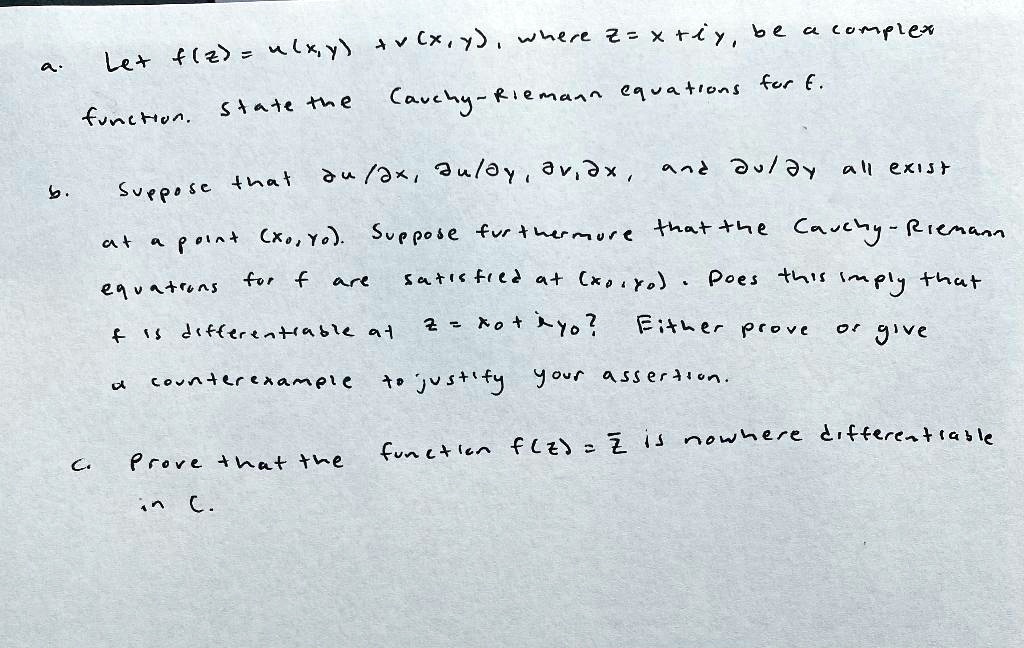 a. Let f(z) = u(x,y) + v(x,y), where z = x + iy, be a complex
function. State the Cauchy-Riemann equations for f.
b. Suppose that ∂u/∂x, ∂u/∂y, ∂v,∂x, and ∂v/∂y all exist
at a point (x₀,y₀). Suppose furthermore that the Cauchy-Riemann
equations for f are satisfied at (x₀,y₀). Does this imply that
f is differentiable at z = x₀ + iy₀? Either prove or give
a counterexample to justify your assertion.
c. Prove that the function f(z) = z̄ is nowhere differentiable
in C.